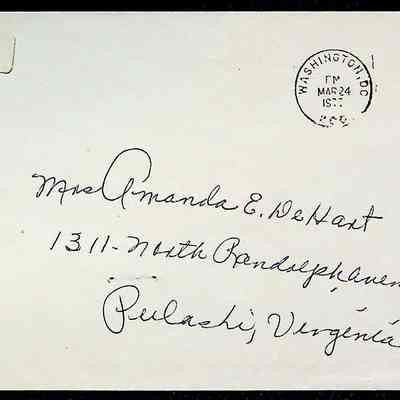 WASHINGTON, DC
PM
MAR 24
Mrs Amanda E. DeHart
1311-North Randolph aven
Pulaski, Virginia